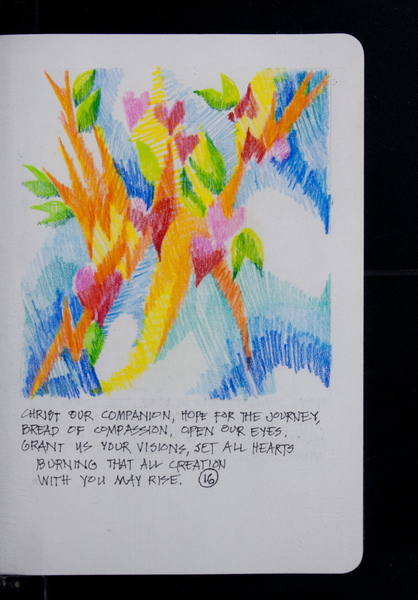 CHRIST OUR COMPANION, HOPE FOR THE JOURNEY,
BREAD OF COMPASSION, OPEN OUR EYES.
GRANT US YOUR VISIONS, SET ALL HEARTS
BURNING THAT ALL CREATION
WITH YOU MAY RISE. 16